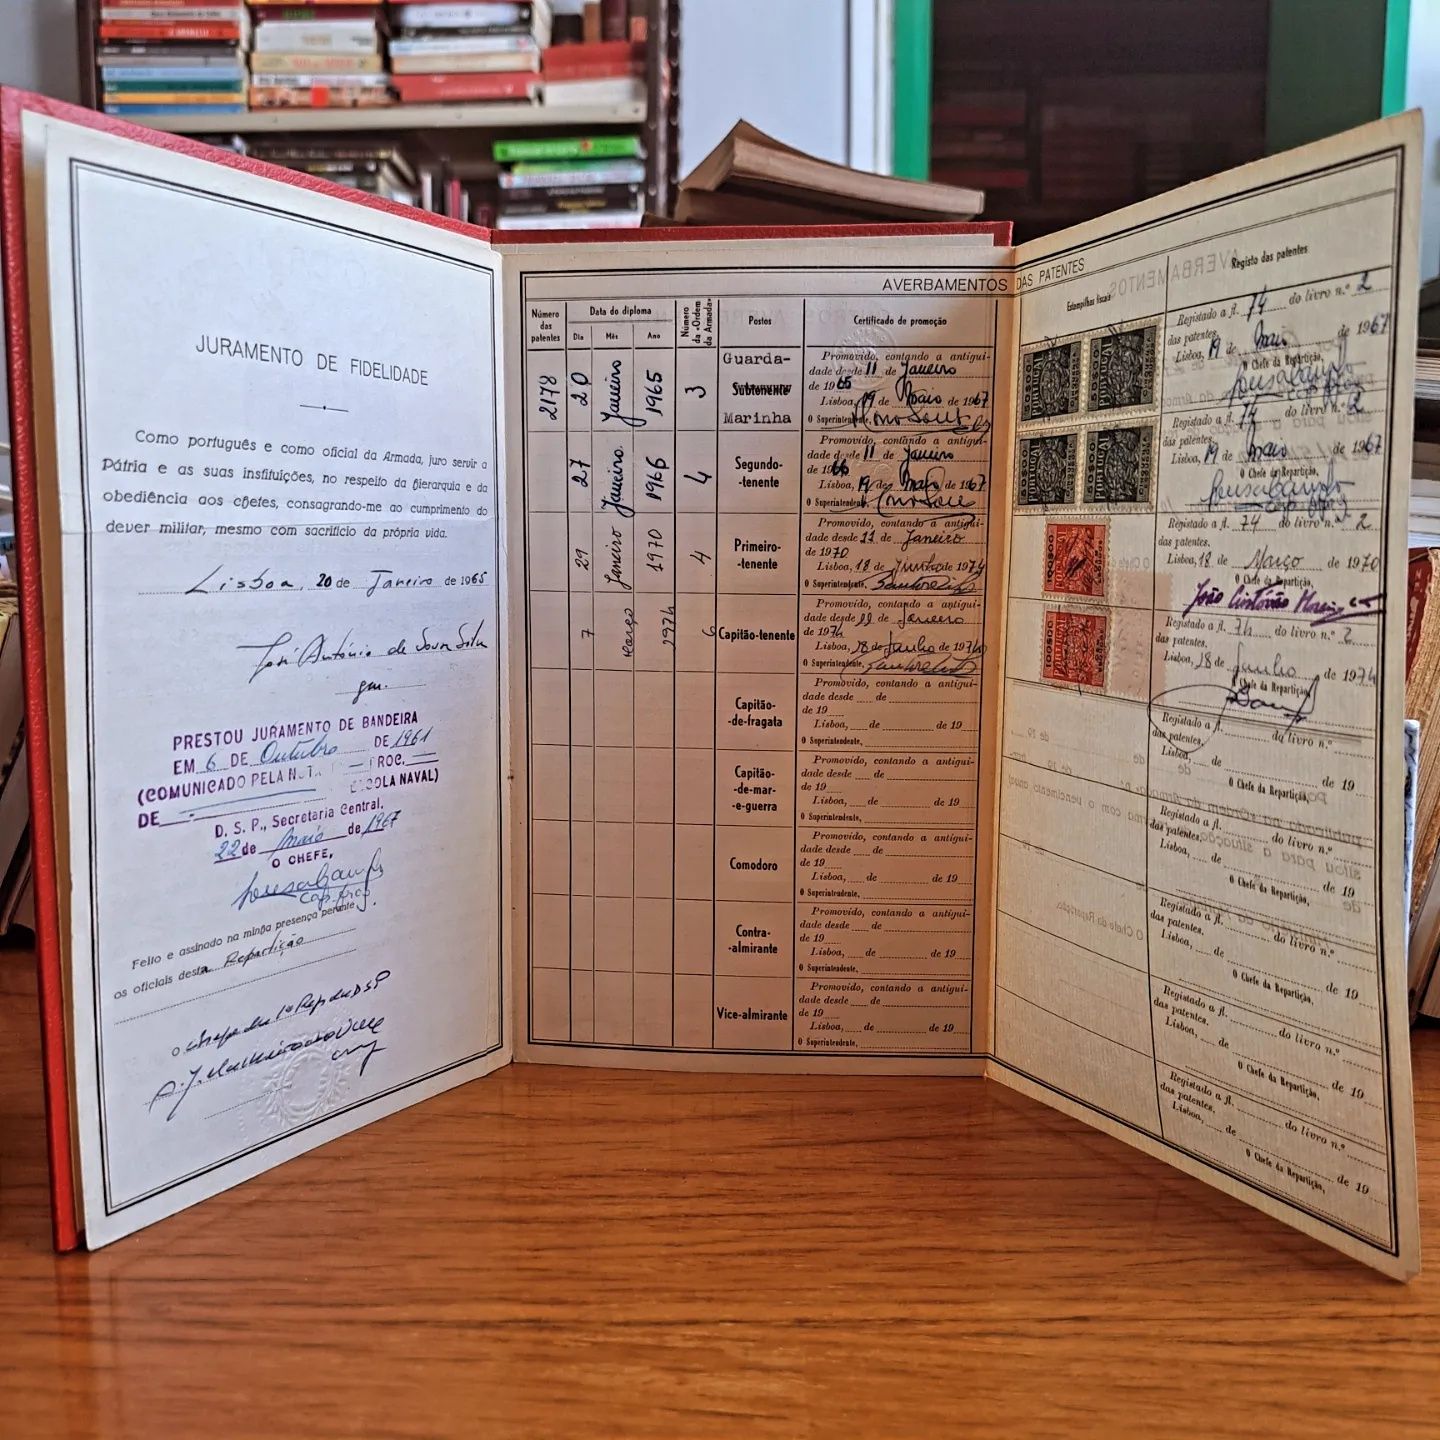 JURAMENTO DE FIDELIDADE
Como português e como oficial da Armada, juro servir a
Pátria e as suas instituições, no respeito da hierarquia e da
obediência aos chefes, consagrando-me ao cumprimento do
dever militar, mesmo com sacrifício da própria vida.
Lisboa, 20 de Janeiro de 1965
José António de Sousa
PRESTOU JURAMENTO DE BANDEIRA
EM 6 DE Outubro DE 1961
(COMUNICADO PELA NOTA PROC.
DE ESCOLA NAVAL)
D. S. P., Secretaria Central,
22 de Maio de 1967
O CHEFE,
Feito e assinado na minha presença perante
os oficiais desta Repartição
AVERBAMENTOS DAS PATENTES
Número das patentes
Data do diploma
Dia Mês Ano
Número da «Ordem da Armada»
Postos
Certificado de promoção
2178 20 Janeiro 1965 3
Guarda-
Subtenente
Marinha
Promovido, contando a antigui-
dade desde 11 de Janeiro
de 1965
Lisboa, 19 de Maio de 1967
O Superintendente,
27 Janeiro 1966 4
Segundo-
-tenente
Promovido, contando a antigui-
dade desde 11 de Janeiro
de 1966
Lisboa, 19 de Maio de 1967
O Superintendente,
29 Janeiro 1970 4
Primeiro-
-tenente
Promovido, contando a antigui-
dade desde 11 de Janeiro
de 1970
Lisboa, 18 de Junho de 1974
O Superintendente,
7 março 1974 6
Capitão-tenente
Promovido, contando a antigui-
dade desde 11 de Janeiro
de 1974
Lisboa, 18 de Junho de 1974
O Superintendente,
Capitão-
-de-fragata
Promovido, contando a antigui-
dade desde de
de 19
Lisboa, de de 19
O Superintendente,
Capitão-
-de-mar-
-e-guerra
Promovido, contando a antigui-
dade desde de
de 19
Lisboa, de de 19
O Superintendente,
Comodoro
Promovido, contando a antigui-
dade desde de
de 19
Lisboa, de de 19
O Superintendente,
Contra-
-almirante
Promovido, contando a antigui-
dade desde de
de 19
Lisboa, de de 19
O Superintendente,
Vice-almirante
Promovido, contando a antigui-
dade desde de
de 19
Lisboa, de de 19
O Superintendente,
Estampilhas fiscais
Registo das patentes
PORTUGAL
PORTUGAL
PORTUGAL
PORTUGAL
100$00
100$00
Registado a fl. 74 do livro n.º 2
das patentes.
Lisboa, 19 de Maio de 1967
O Chefe da Repartição,
Registado a fl. 74 do livro n.º 2
das patentes.
Lisboa, 19 de Maio de 1967
O Chefe da Repartição,
Registado a fl. 74 do livro n.º 2
das patentes.
Lisboa, 18 de Março de 1970
O Chefe da Repartição,
João Cristóvão Moreira
Registado a fl. 74 do livro n.º 2
das patentes.
Lisboa, 18 de Junho de 1974
O Chefe da Repartição,
Registado a fl. do livro n.º
das patentes.
Lisboa, de de 19
O Chefe da Repartição,
Registado a fl. do livro n.º
das patentes.
Lisboa, de de 19
O Chefe da Repartição,
Registado a fl. do livro n.º
das patentes.
Lisboa, de de 19
O Chefe da Repartição,
Registado a fl. do livro n.º
das patentes.
Lisboa, de de 19
O Chefe da Repartição,
Registado a fl. do livro n.º
das patentes.
Lisboa, de de 19
O Chefe da Repartição,